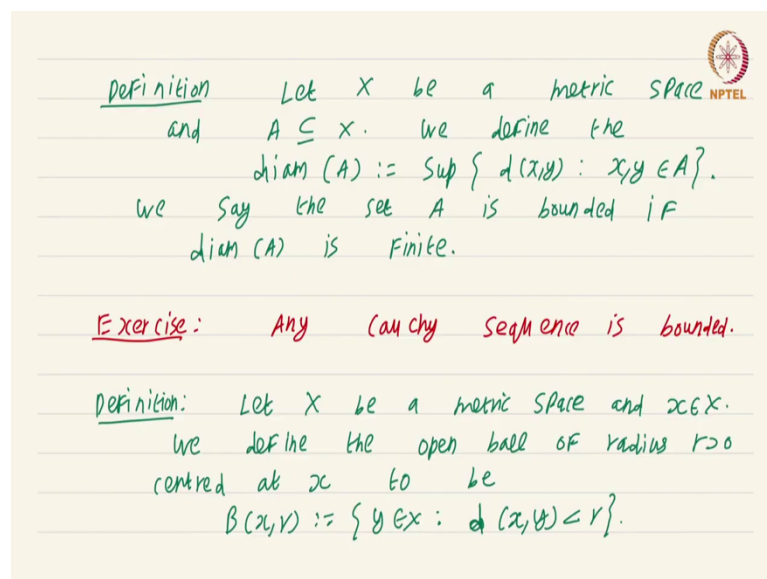 Definition Let X be a metric space
NPTEL
and A ⊆ X. We define the
diam (A) := sup { d(x,y) : x,y ∈ A}.
We say the set A is bounded if
diam (A) is finite.
Exercise: Any Cauchy sequence is bounded.
Definition: Let X be a metric space and x∈X.
We define the open ball of radius r>0
centred at x to be
B(x,r) := { y∈X : d(x,y)<r}.